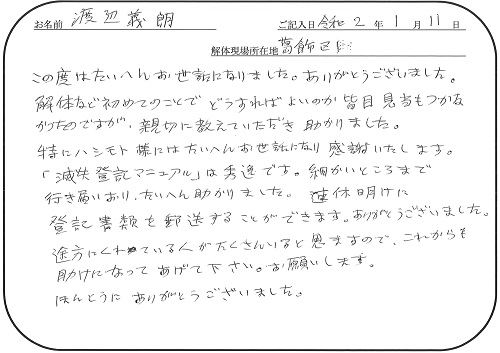 お名前 渡辺義朗 ご記入日 令和 2 年 1 月 11 日
解体現場所在地 葛飾区
この度はたいへんお世話になりました。ありがとうございました。
解体など初めてのことで どうすればよいのか 皆目見当もつかな
かったのですが、親切に教えていただき 助かりました。
特にハシモト様にはたいへんお世話になり 感謝いたします。
「滅失登記マニュアル」は秀逸です。細かいところまで
行き届いおり、たいへん助かりました。 連休明けに
登記書類を郵送することができます。ありがとうございました。
途方にくれている人がたくさんいると思いますので、これからも
助けになって あげて下さい。お願いします。
ほんとうに ありがとうございました。